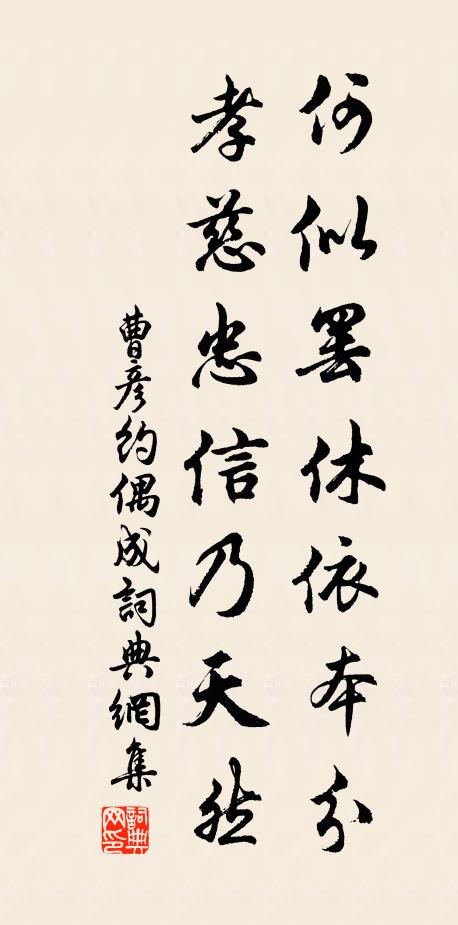 何似罢休依本分
孝慈忠信乃天然
曹彦约偶成詞典網集
詞典网印